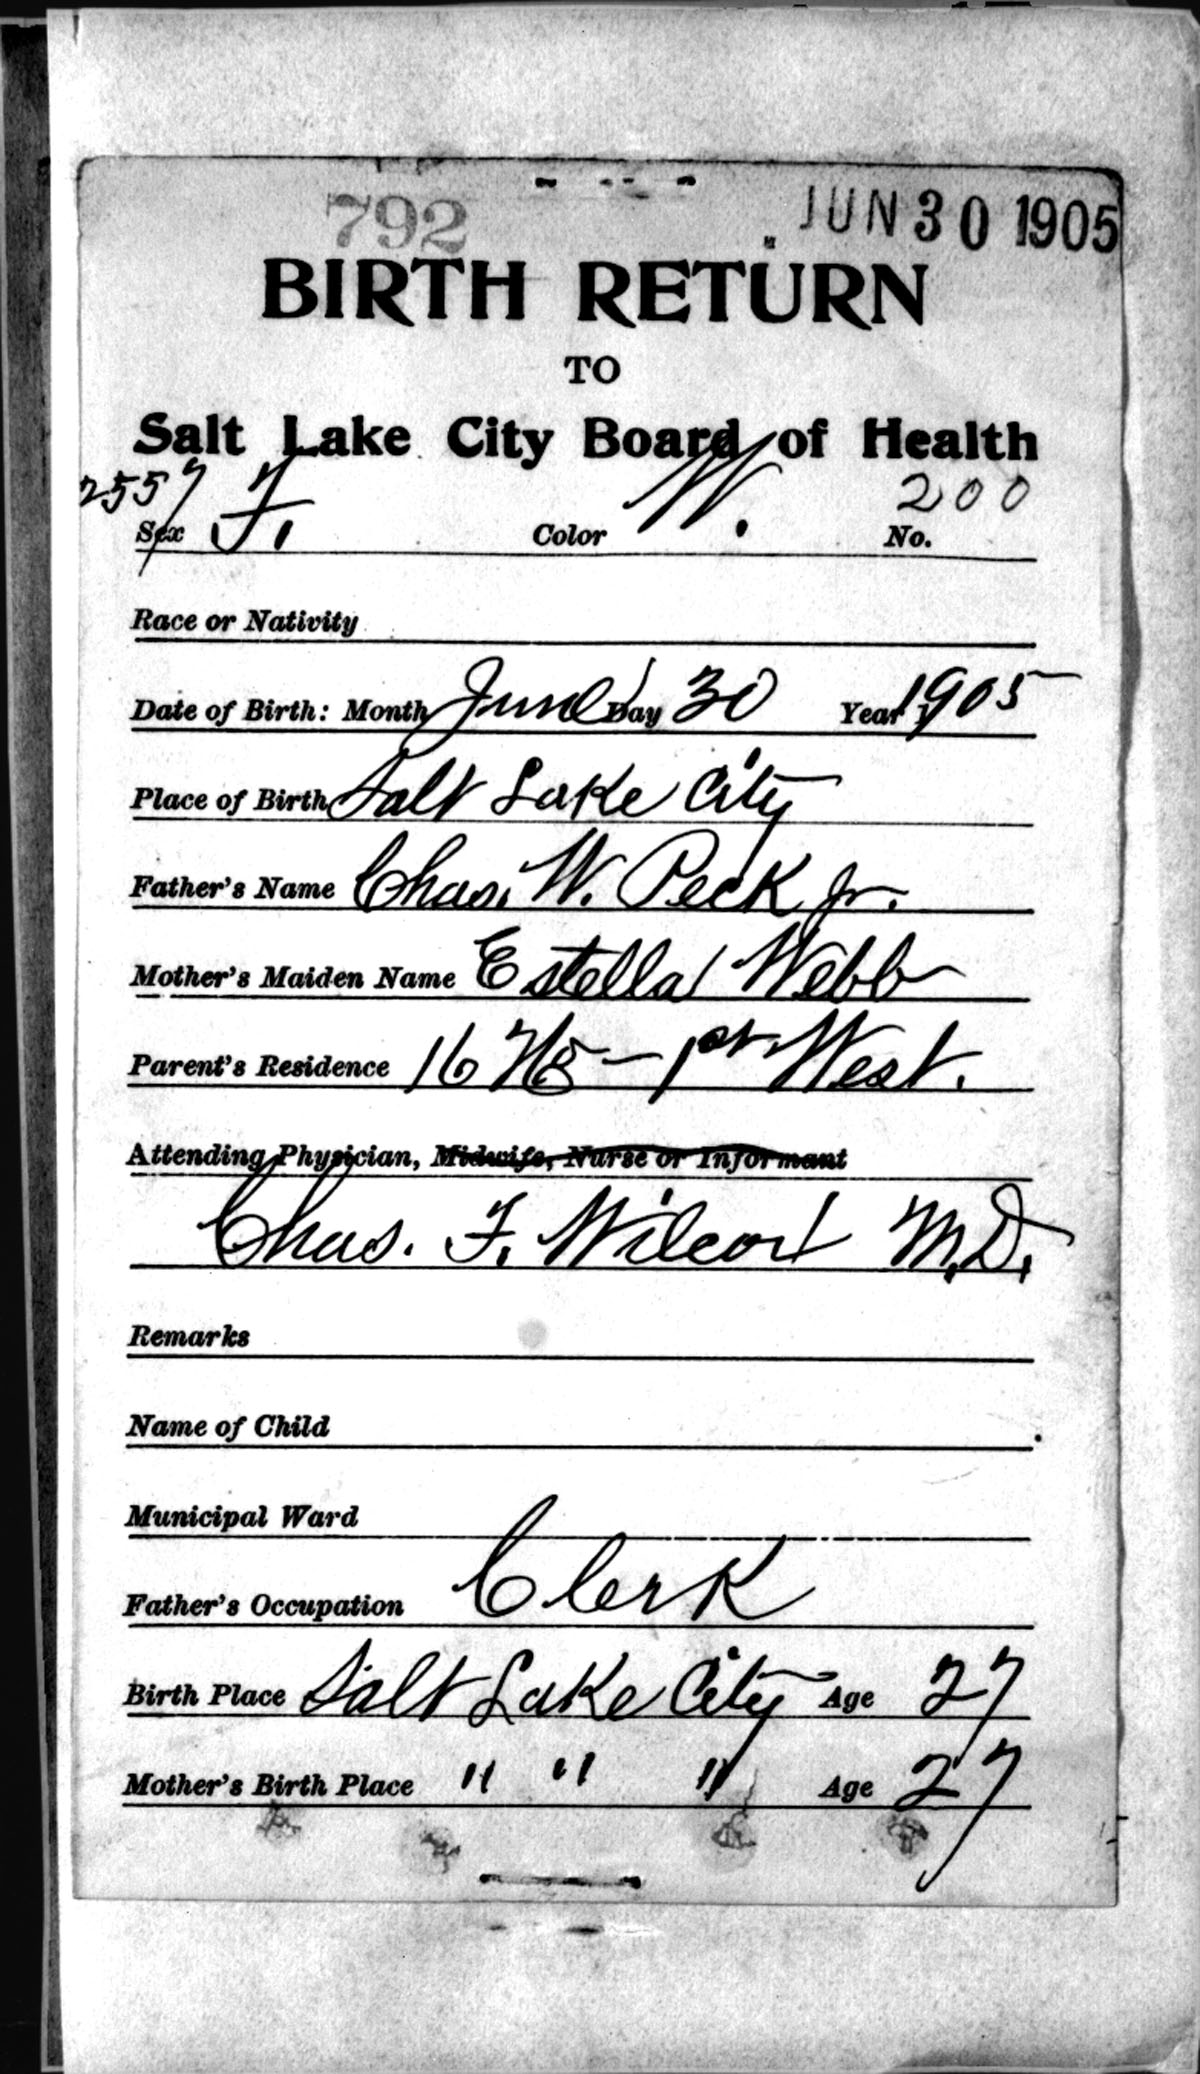 792 JUN 30 1905
BIRTH RETURN
TO
Salt Lake City Board of Health
2557 200
Sex F. Color W. No.
Race or Nativity
Date of Birth: Month June Day 30 Year 1905
Place of Birth Salt Lake City
Father's Name Chas. W. Peck Jr.
Mother's Maiden Name Estella Webb
Parent's Residence 16 – 1st West.
Attending Physician, Midwife, Nurse or Informant
Chas. F. Wilcox M.D.
Remarks
Name of Child
Municipal Ward
Father's Occupation Clerk
Birth Place Salt Lake City Age 27
Mother's Birth Place " " " Age 27